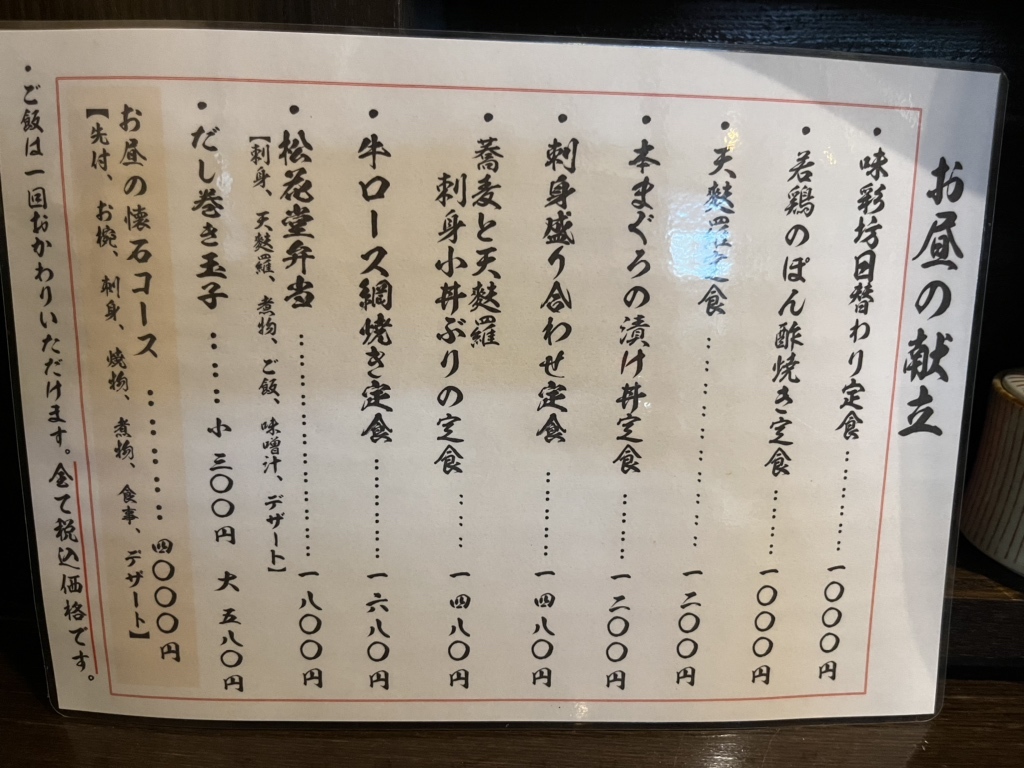 お昼の献立
・味彩坊日替わり定食…………一〇〇〇円
・若鶏のぽん酢焼き定食………一〇〇〇円
・天麩羅定食………………………一二〇〇円
・本まぐろの漬け丼定食………一二〇〇円
・刺身盛り合わせ定食…………一四八〇円
・蕎麦と天麩羅
刺身小丼ぶりの定食……一四八〇円
・牛ロース網焼き定食…………一六八〇円
・松花堂弁当………………………一八〇〇円
【刺身、天麩羅、煮物、ご飯、味噌汁、デザート】
・だし巻き玉子……小 三〇〇円 大 五八〇円
お昼の懐石コース…………四〇〇〇円
【先付、お椀、刺身、焼物、煮物、食事、デザート】
・ご飯は一回おかわりいただけます。全て税込価格です。